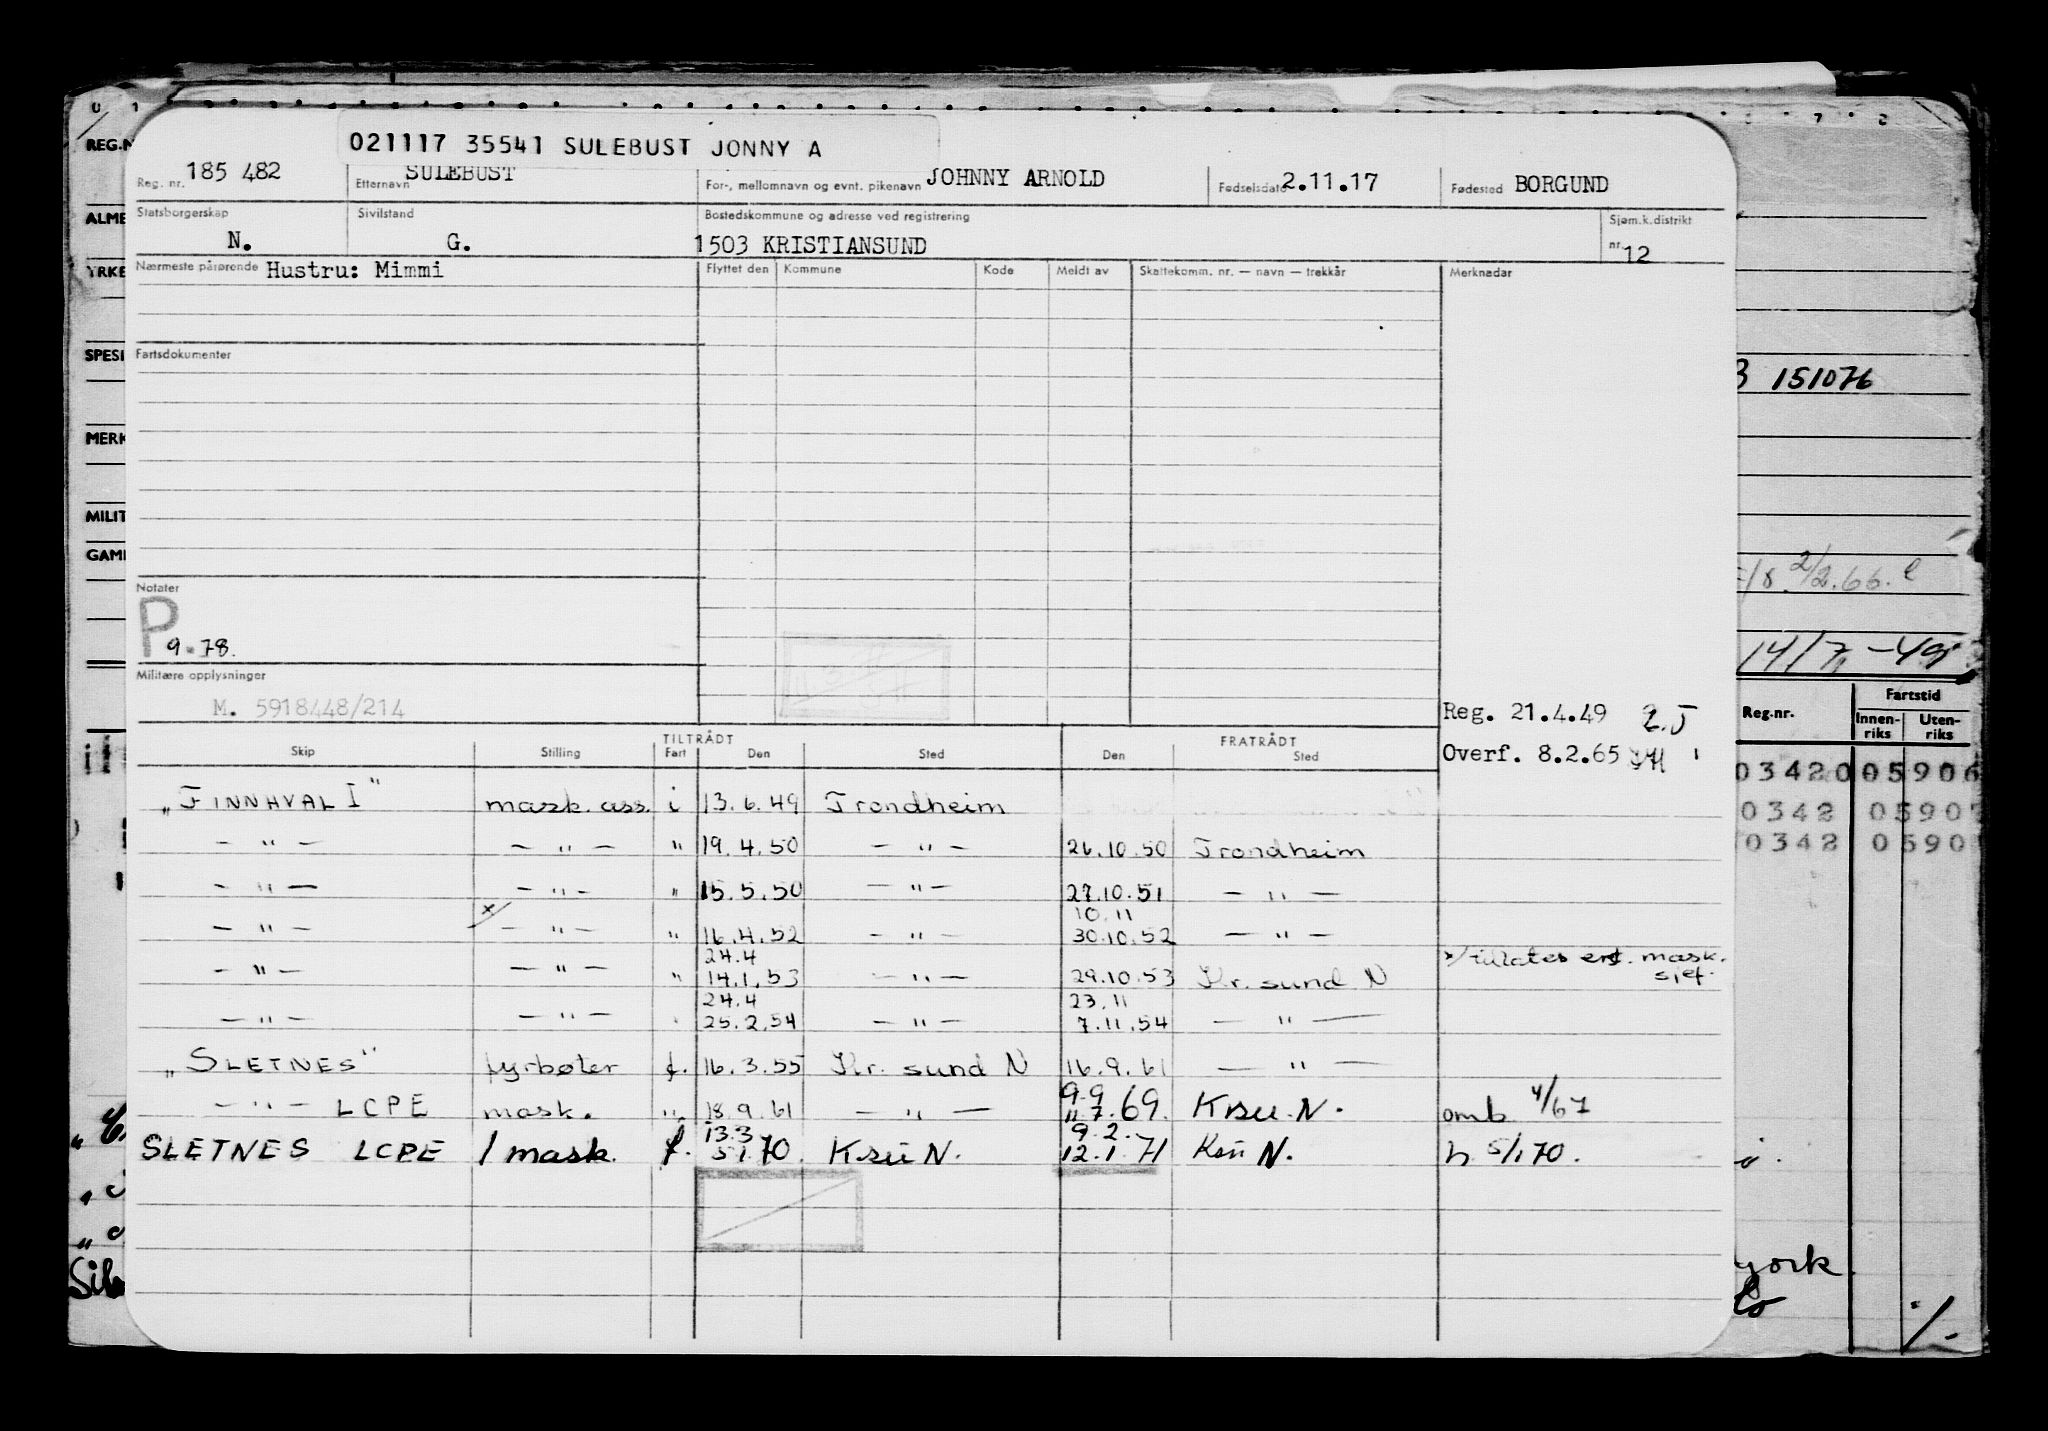 021117 35541 SULEBUST JONNY A
Reg. nr. 185 482 Etternavn SULEBUST For-, mellomnavn og evnt. pikenavn JOHNNY ARNOLD Fødselsdato 2.11.17 Fødested BORGUND
Statsborgerskap N. Sivilstand G. Bostedskommune og adresse ved registrering 1503 KRISTIANSUND Sjøm.k.distrikt nr. 12
Nærmeste pårørende Hustru: Mimmi Flyttet den Kommune Kode Meldt av Skattekomm. nr. — navn — trekkår Merknadar
Fartsdokumenter
Notater
P 9.78.
Militære opplysninger
M. 5918448/214
Reg. 21.4.49
Overf. 8.2.65
TILTRÅDT FRATRÅDT
Skip Stilling Fart Den Sted Den Sted
„FINNHVAL I" mask. ass. i 13.6.49 Trondheim
— " — — " — " 19.4.50 — " — 26.10.50 Trondheim
— " — — " — " 15.5.50 — " — 27.10.51 — " —
x/ 10.11
— " — — " — " 16.4.52 — " — 30.10.52 — " —
24.4 x/ tillates erst. mask. sjef.
— " — — " — " 14.1.53 — " — 29.10.53 Kr. sund N
24.4 23.11
— " — — " — 25.2.54 — " — 7.11.54 — " —
„SLETNES" fyrbøter f. 16.3.55 Kr. sund N 16.9.61 — " —
9.9
— " — LCPE mask. " 18.9.61 — " — 11.7.69. Ksu. N. omb 4/67
13.3 9.2.
SLETNES LCPE 1 mask. f. 5.1.70. Ksu N. 12.1.71 Ksu N. h 5/1 70.
REG.N
ALME
YRKE
SPESI
MERK
MILIT
GAML
151076
2/2.66.
14/7, -49
Reg.nr. Fartstid
Innen-riks Uten-riks
03420 05906
0342 0590
0342 0590
york